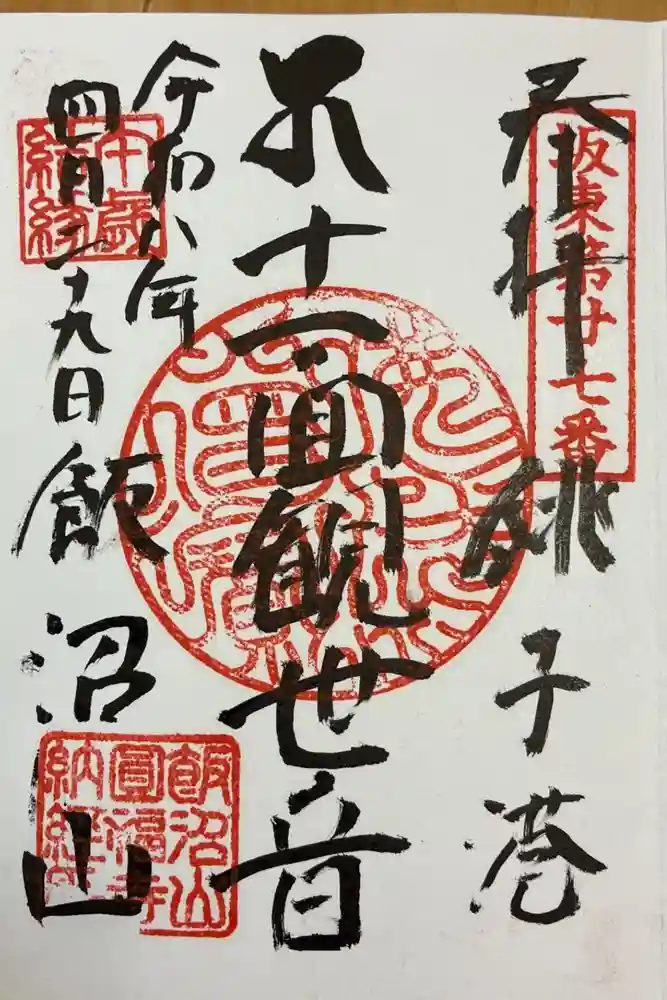 坂東第廿七番
奉拝 銚子港
十一面観世音
令和八年
四月二十九日
飯沼山
午歳
結縁
飯沼山
圓福寺
納経